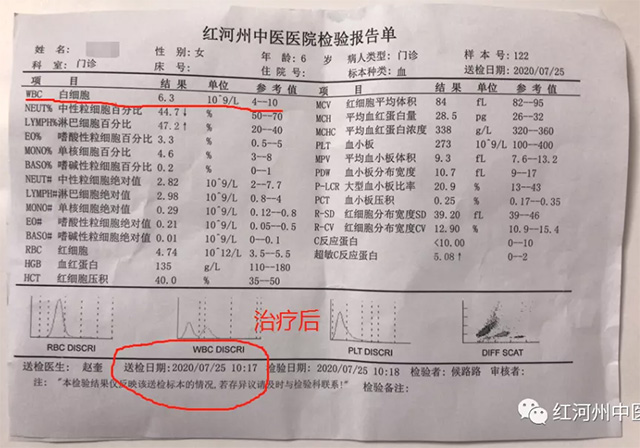 红河州中医医院检验报告单
姓 名: 性 别:女 年 龄:6 岁 病人类型:门诊 样 本 号:122
科 室:门诊 床 号: 住 院 号: 标本种类:血 送检日期:2020/07/25
项 目 结 果 单位 参 考 值 项 目 结 果 单位 参 考 值
WBC 白细胞 6.3 10^9/L 4--10 MCV 红细胞平均体积 84 fL 82--95
NEUT% 中性粒细胞百分比 44.7↓ % 50--70 MCH 平均血红蛋白量 28.5 pg 26--32
LYMPH%淋巴细胞百分比 47.2↑ % 20--40 MCHC 平均血红蛋白浓度 338 g/L 320--360
EO% 嗜酸性粒细胞百分比 3.3 % 0.5--5 PLT 血小板 273 10^9/L 100--400
MONO% 单核细胞百分比 4.6 % 3--8 MPV 血小板平均体积 9.3 fL 7.6--13.2
BASO% 嗜碱性粒细胞百分比 0.2 % 0--1 PDW 血小板分布宽度 10.7 fL 9--17
NEUT# 中性粒细胞绝对值 2.82 10^9/L 2--7.7 P-LCR 大型血小板比率 20.9 % 13--43
LYMPH#淋巴细胞绝对值 2.98 10^9/L 0.8--4 PCT 血小板压积 0.25 % 0.17--0.35
MONO# 单核细胞绝对值 0.29 10^9/L 0.12--0.8 R-SD 红细胞分布宽度SD 39.20 fL 39--46
EO# 嗜酸性粒细胞绝对值 0.21 10^9/L 0.05--0.5 R-CV 红细胞分布宽度CV 12.90 % 10.9--15.4
BASO# 嗜碱性粒细胞绝对值 0.01 10^9/L 0--0.1 C反应蛋白 <10.00 0--10
RBC 红细胞 4.74 10^12/L 3.5--5.5 超敏C反应蛋白 5.08↑ 0--2
HGB 血红蛋白 135 g/L 110--180
HCT 红细胞压积 40.0 % 35--50
治疗后
RBC DISCRI WBC DISCRI PLT DISCRI DIFF SCAT
送检医生: 赵奎 送检日期:2020/07/25 10:17 检验日期:2020/07/25 10:18 检验者:候路路 审核者:
注: "本检验结果仅反映该送检标本的情况,若存异议请及时与检验科联系!" 检验备注:
红河州中医